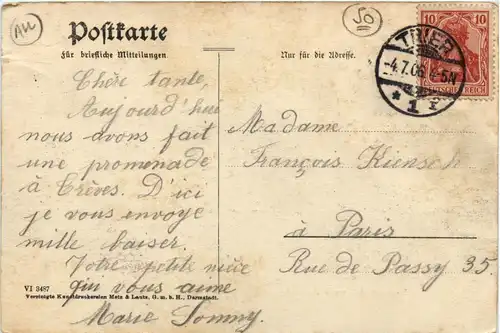 All
50
Postkarte
Für briefliche Mitteilungen.
Nur für die Adresse.
10 10
DEUTSCHES REICH
TRIER
-4.7.06 4-5N
* 1 r
Chère tante,
Aujourd'hui
nous avons fait
une promenade
à Trèves. D'ici
je vous envoye
mille baiser.
Votre petite nièce
qui vous aime
Marie
Madame
François Kiensch
à Paris
Rue de Passy 35.
VI 3487
Vereinigte Kunstdruckereien Metz & Lautz, G. m. b. H., Darmstadt.